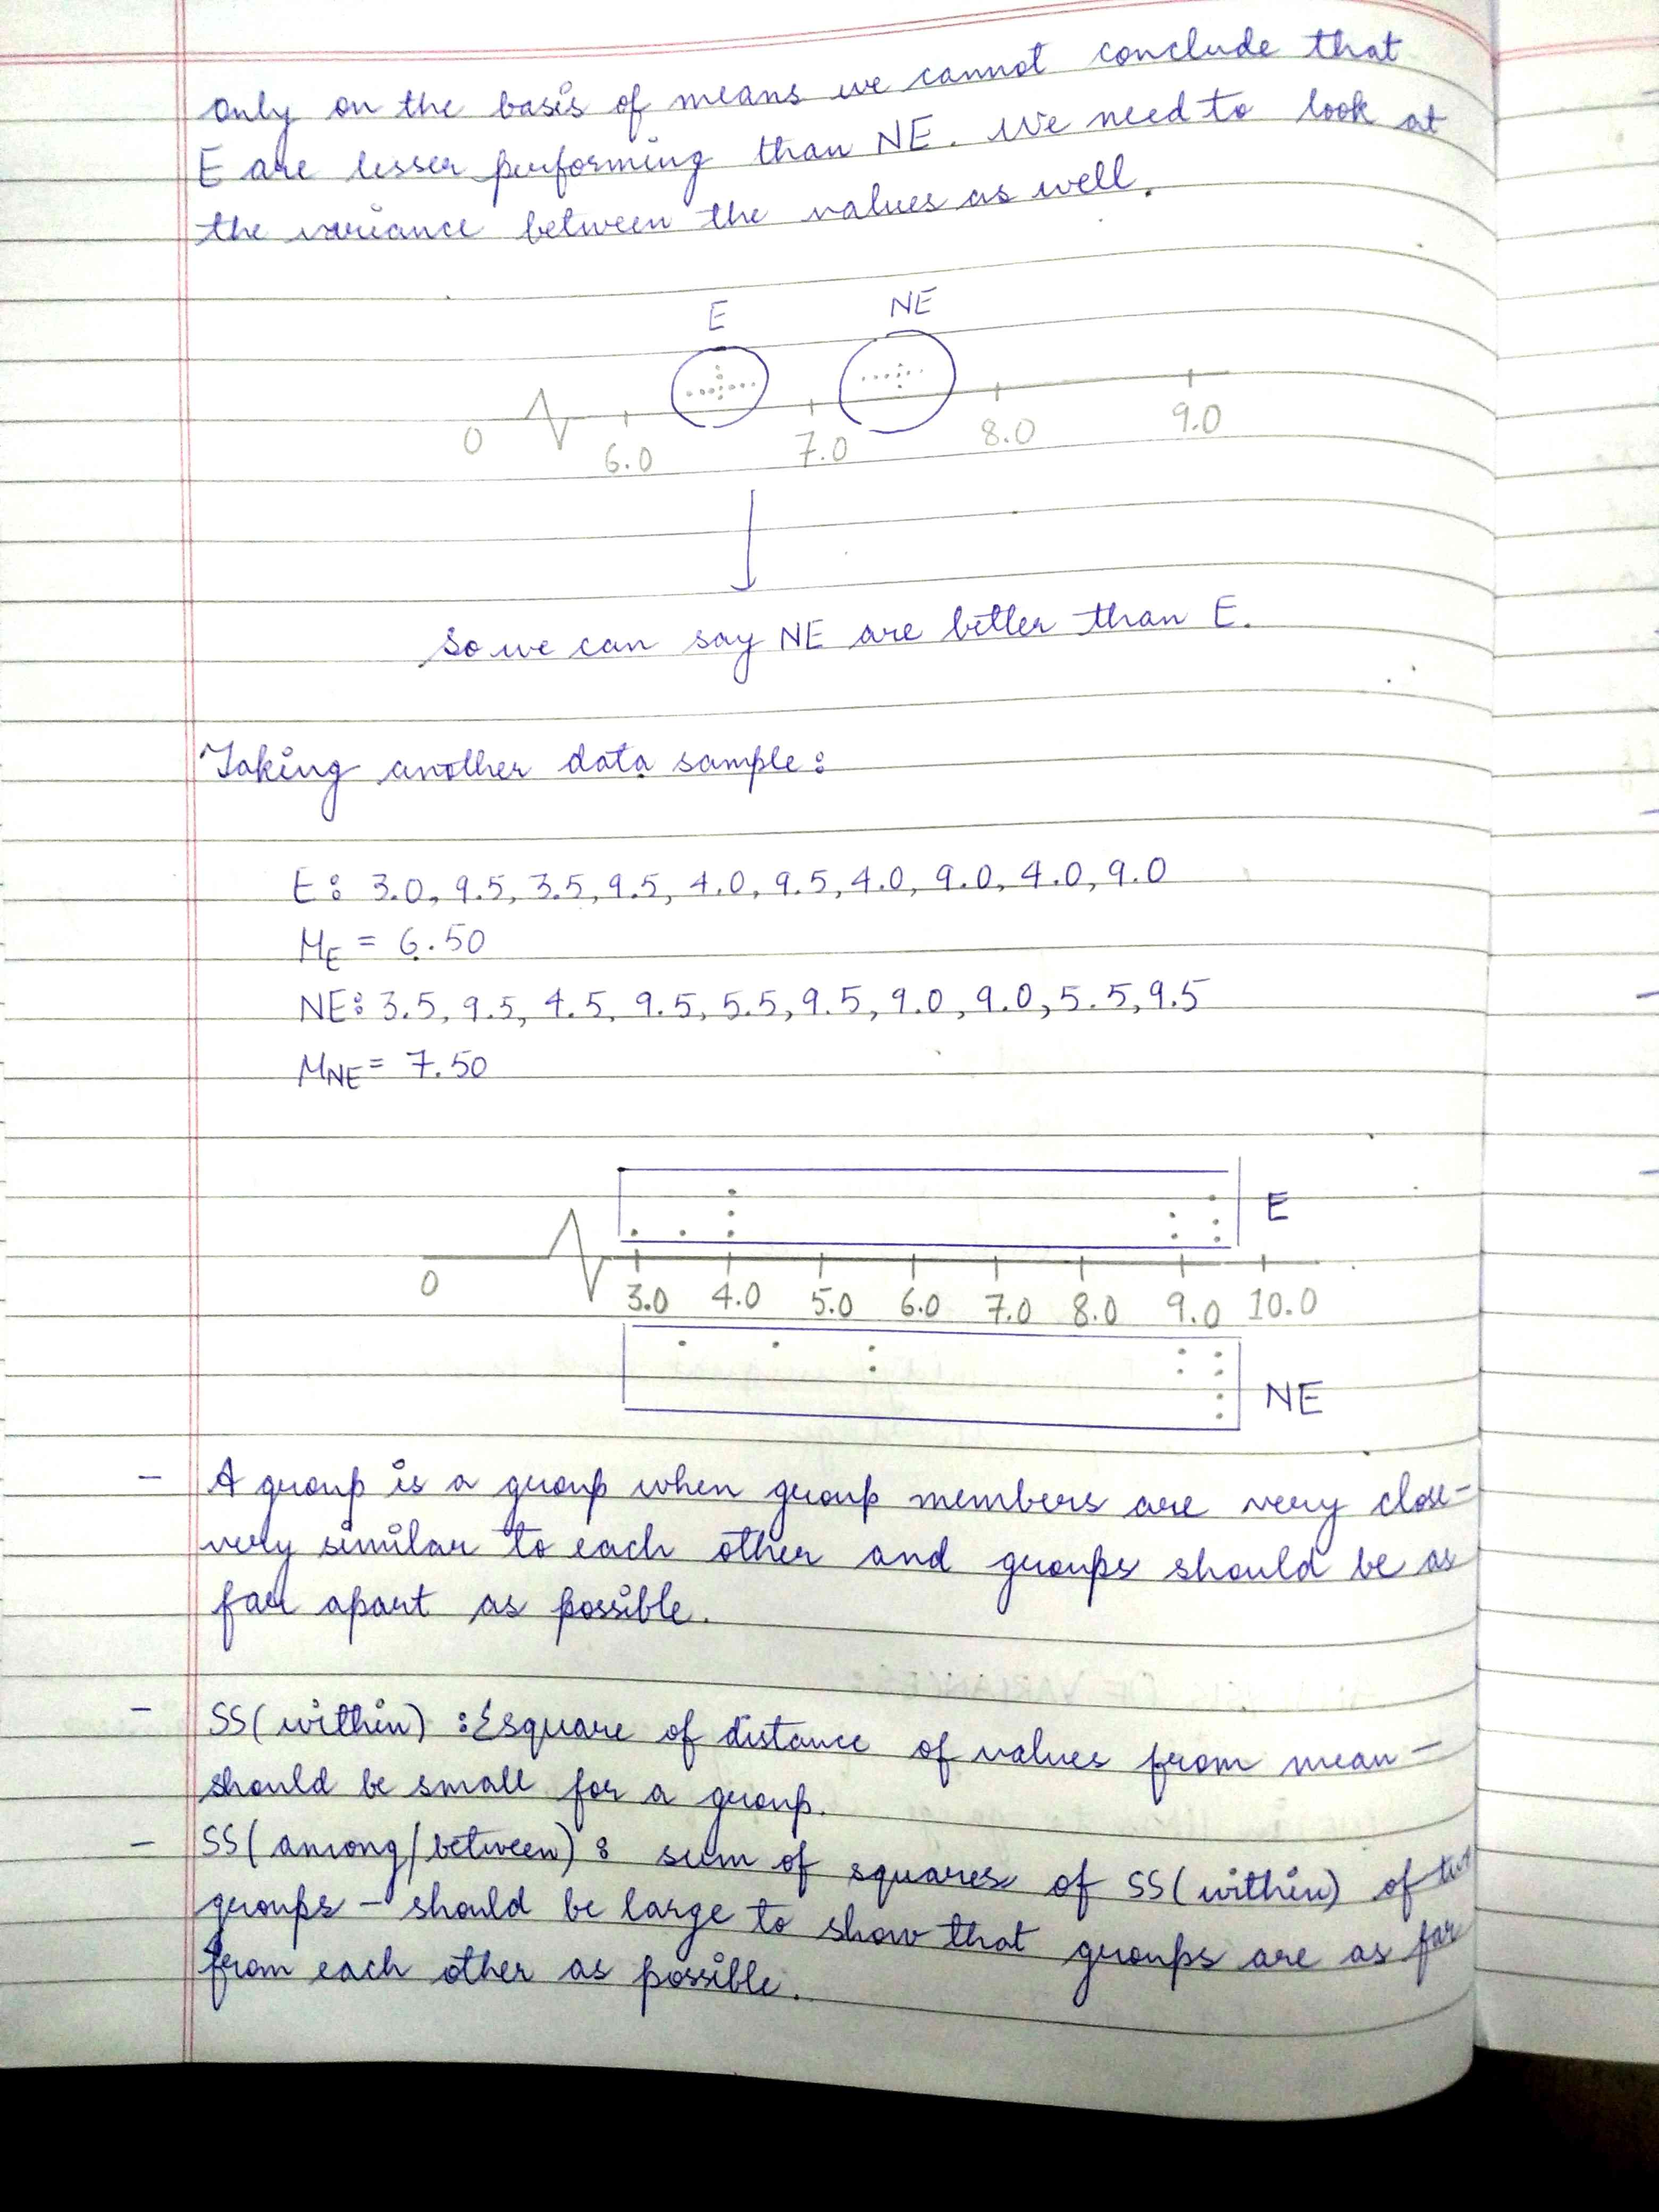 only on the basis of means we cannot conclude that
E are lesser performing than NE. We need to look at
the variance between the values as well.
E NE
0 6.0 7.0 8.0 9.0
So we can say NE are better than E.
Taking another data sample:
E: 3.0, 9.5, 3.5, 9.5, 4.0, 9.5, 4.0, 9.0, 4.0, 9.0
ME = 6.50
NE: 3.5, 9.5, 4.5, 9.5, 5.5, 9.5, 9.0, 9.0, 5.5, 9.5
MNE = 7.50
E
0 3.0 4.0 5.0 6.0 7.0 8.0 9.0 10.0
NE
- A group is a group when group members are very close-
very similar to each other and groups should be as
far apart as possible.
- SS(within) : Σ square of distance of values from mean -
should be small for a group.
- SS(among/between) : sum of squares of SS(within) of two
groups - should be large to show that groups are as far
from each other as possible.